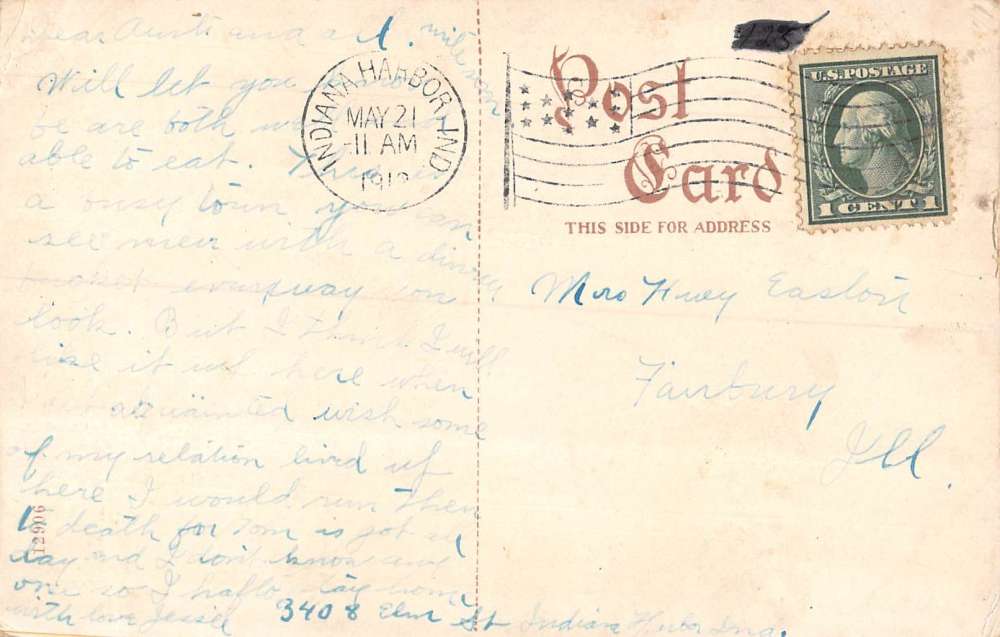 Dear Aunt and all.
Will let you
be are both
able to eat. This is
a busy town you can
see men with a dinner
bucket everyway you
look. But I think I will
like it up here when
I get aquainted wish some
of my relation lived up
here I would run them
to death for Tom is got all
day and I don't know any
one so I hafto stay home
with love Jessie 3408 Elm St. Indiana Harbor Ind.
12906
INDIANA HARBOR, IND
MAY 21
11 AM
Post
Card
THIS SIDE FOR ADDRESS
U.S. POSTAGE
1 CENT 1
Mrs Huey Easton
Fairbury
Ill.